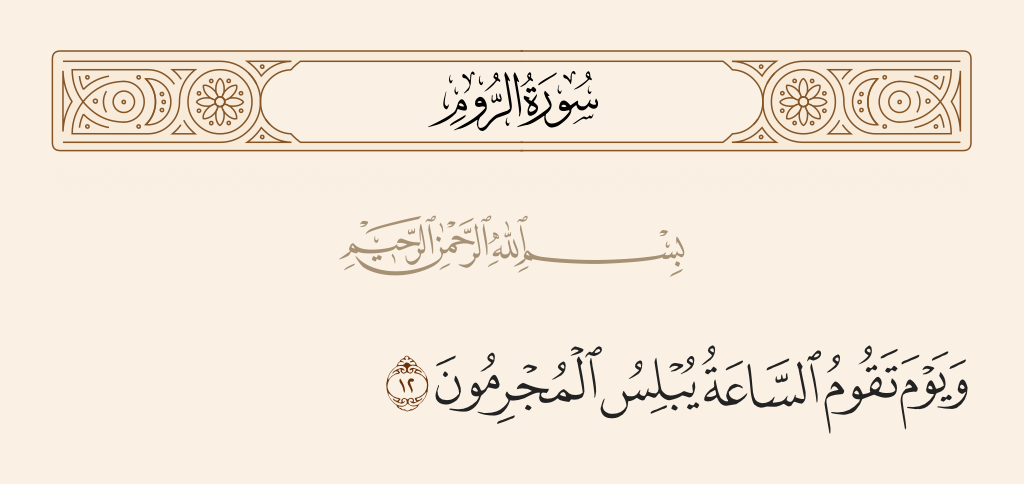 سُورَةُ الرُّومِ
بِسْمِ ٱللَّهِ ٱلرَّحْمَٰنِ ٱلرَّحِيمِ
وَيَوْمَ تَقُومُ ٱلسَّاعَةُ يُبْلِسُ ٱلْمُجْرِمُونَ ١٢